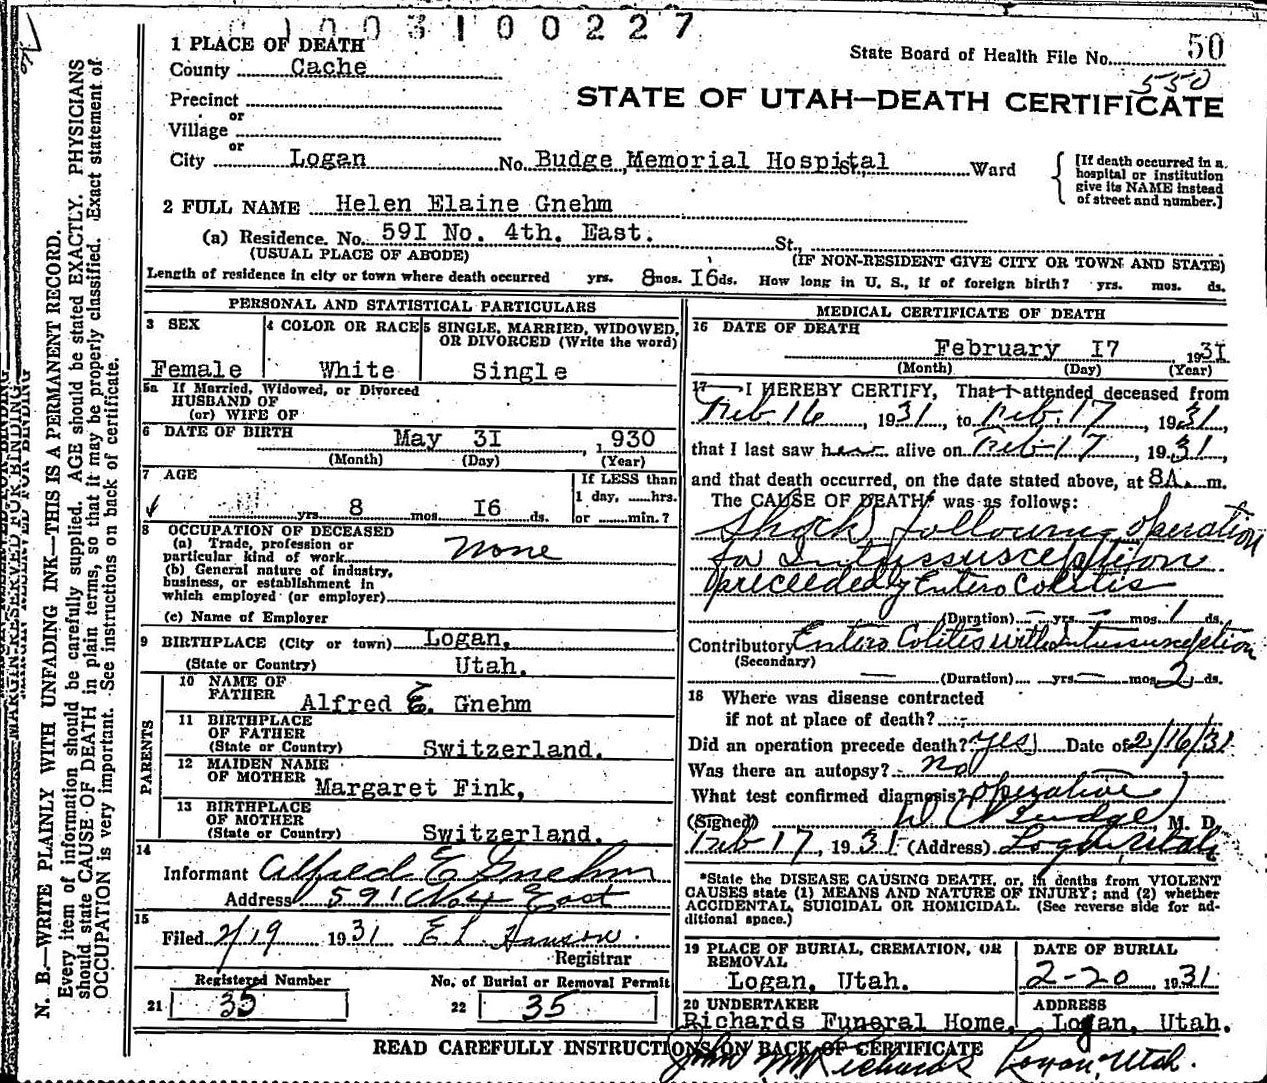 1003100227
1 PLACE OF DEATH
State Board of Health File No. 50
County Cache
550
Precinct
STATE OF UTAH—DEATH CERTIFICATE
or
Village
or
City Logan No. Budge Memorial Hospital St., Ward
[If death occurred in a hospital or institution give its NAME instead of street and number.]
2 FULL NAME Helen Elaine Gnehm
(a) Residence. No. 59I No. 4th. East. St.,
(USUAL PLACE OF ABODE) (IF NON-RESIDENT GIVE CITY OR TOWN AND STATE)
Length of residence in city or town where death occurred yrs. 8 mos. I6 ds. How long in U. S., if of foreign birth? yrs. mos. ds.
PERSONAL AND STATISTICAL PARTICULARS
3 SEX 4 COLOR OR RACE 5 SINGLE, MARRIED, WIDOWED, OR DIVORCED (Write the word)
Female White Single
5a If Married, Widowed, or Divorced
HUSBAND OF
(or) WIFE OF
6 DATE OF BIRTH May 3I , 1930
(Month) (Day) (Year)
7 AGE If LESS than
1 day, hrs.
yrs. 8 mos. I6 ds. or min.?
8 OCCUPATION OF DECEASED
(a) Trade, profession or
particular kind of work none
(b) General nature of industry,
business, or establishment in
which employed (or employer)
(c) Name of Employer
9 BIRTHPLACE (City or town) Logan,
(State or Country) Utah.
PARENTS
10 NAME OF
FATHER Alfred E. Gnehm
11 BIRTHPLACE
OF FATHER
(State or Country) Switzerland.
12 MAIDEN NAME
OF MOTHER Margaret Fink,
13 BIRTHPLACE
OF MOTHER
(State or Country) Switzerland.
14
Informant Alfred E Gnehm
Address 591 No 4 East
15
Filed 2/19 1931 E L Hansen.
Registrar
Registered Number No. of Burial or Removal Permit
21 35 22 35
MEDICAL CERTIFICATE OF DEATH
16 DATE OF DEATH
February I7 1931
(Month) (Day) (Year)
17 I HEREBY CERTIFY, That I attended deceased from
Feb. 16, 1931, to Feb. 17, 1931,
that I last saw her alive on Feb-17, 1931,
and that death occurred, on the date stated above, at 8A. m.
The CAUSE OF DEATH* was as follows:
Shock following operation
for Intussusception
preceeded by Entero Colitis
(Duration) — yrs. — mos. 1 ds.
Contributory Entero Colitis with Intussusception
(Secondary)
— (Duration) yrs. — mos. 2 ds.
18 Where was disease contracted
if not at place of death?
Did an operation precede death? yes Date of 2/16/31
Was there an autopsy? no
What test confirmed diagnosis? operative
(Signed) D C Budge, M. D.
Feb 17, 1931 (Address) Logan, Utah
*State the DISEASE CAUSING DEATH, or, in deaths from VIOLENT
CAUSES state (1) MEANS AND NATURE OF INJURY; and (2) whether
ACCIDENTAL, SUICIDAL OR HOMICIDAL. (See reverse side for ad-
ditional space.)
19 PLACE OF BURIAL, CREMATION, OR REMOVAL DATE OF BURIAL
Logan, Utah. 2-20 1931
20 UNDERTAKER ADDRESS
Richards Funeral Home, Logan, Utah.
READ CAREFULLY INSTRUCTIONS ON BACK OF CERTIFICATE
John M. Richards Logan, Utah.
MARGIN RESERVED FOR BINDING
N. B.—WRITE PLAINLY WITH UNFADING INK—THIS IS A PERMANENT RECORD.
Every item of information should be carefully supplied. AGE should be stated EXACTLY. PHYSICIANS
should state CAUSE OF DEATH in plain terms, so that it may be properly classified. Exact statement of
OCCUPATION is very important. See instructions on back of certificate.